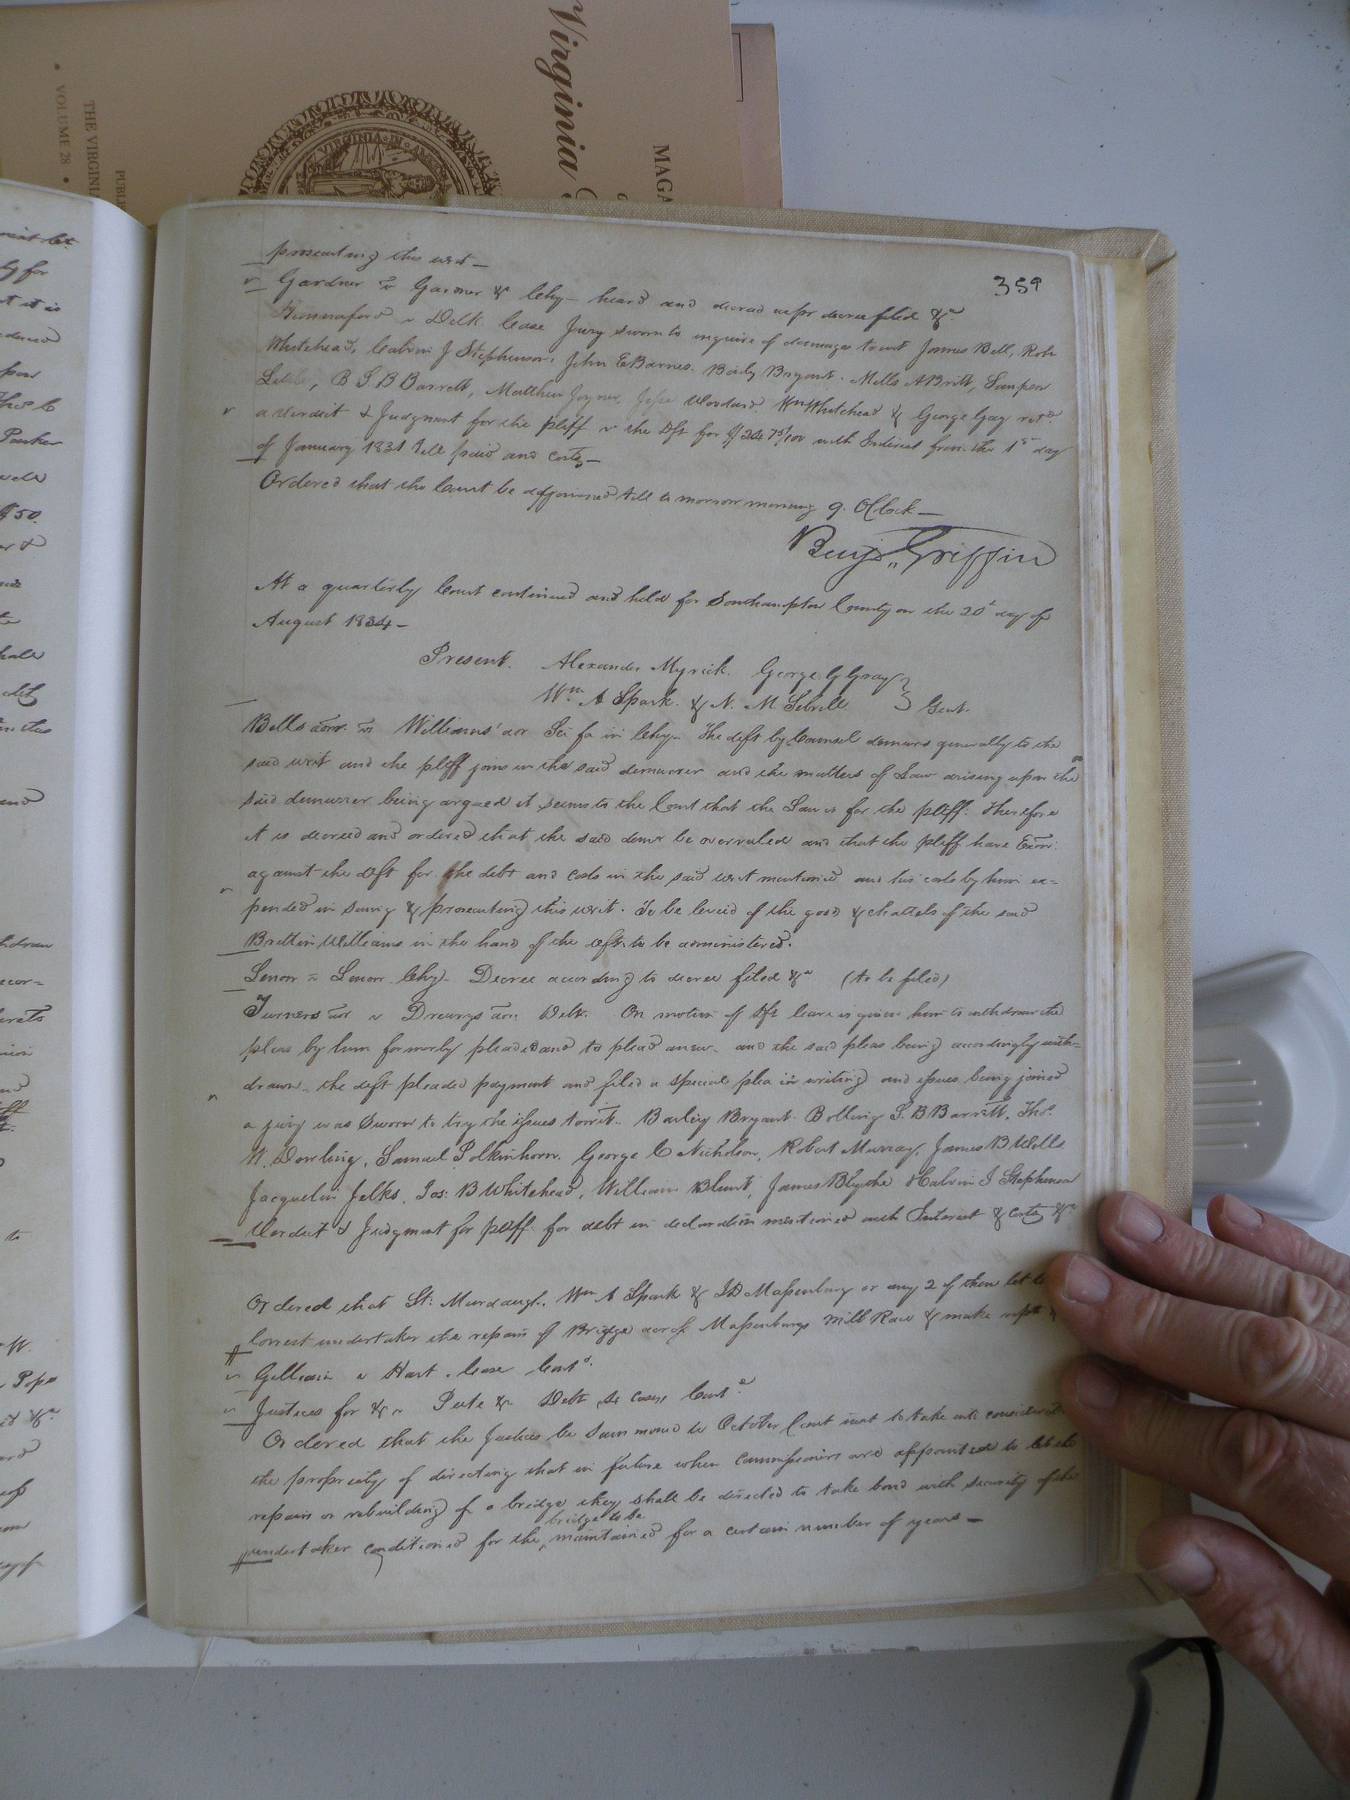 Virginia
MAGA
THE VIRGINI
PUBLI
VOLUME 28
VIRGINIA
359
prosecuting this writ —
Gardner vs Gardner &c Chy — heard and decreed as pr decree filed &c
vs Delk Case Jury sworn to inquire of damages towit James Bell, Rob
Whitehead, Calvin J Stephenson, John E Barnes, Baily Bryant, Mills A Britt, Samson
B S B Barrett, Matthew Joyner, Jesse Woodard, Wm Whitehead & George Gay retd
a verdict & Judgment for the pltff v the dft for $24 75/100 with Interest from the 1st day
of January 1831 till paid and costs —
Ordered that the Court be adjourned till to morrow morning 9. OClock —
Benjn Griffin
At a quarterly Court continued and held for Southampton County on the 20t day of
August 1834 —
Present. Alexander Myrick. George G Gray
Wm A Spark. & N. M Sebrell } Gent.
Bells vs Williams' Sci fa in Chy — The deft by Counsel demurs generally to the
said writ and the pltff joins in the said demurrer and the matters of Law arising upon the
said demurrer being argued it seems to the Court that the Law is for the pltff: Therefore
it is decreed and ordered that the said demr be overruled and that the pltff have Exon:
against the deft for the debt and costs in the said writ mentioned and his costs by him ex=
pended in suing & prosecuting this writ. To be levied of the good & chattels of the said
Brittin Williams in the hand of the deft to be administered.
Chy — Decree according to decree filed &c (to be filed)
Turners vs Drewrys Debt. On motion of dft leave is given him to withdraw the
pleas by him formerly pleaded and to plead anew. and the said pleas being accordingly with=
drawn — the deft pleaded payment and filed a special plea in writing and issues being joined
a jury was Sworn to try the issues towit — Bailey Bryant. Bolling S. B Barrett, Thos.
W. Dowling, Samuel Polkinhorn. George C Nicholson, Robert Murray, James B Wells
Jacquelin Jelks, Jas: B Whitehead, William Blunt, James Blythe Calvin J Stephenson
Verdict & Judgment for pltff for debt in declaration mentioned with Interest & costs &c
Ordered that St: Murdaugh, Wm A Spark & J D Massenburg or any 2 of them let to
lowest undertaker the repairs of Bridge across Massenburgs mill Race & make rept
Gilliam v Hart. Case Contd.
Justices for &c v Pete &c Debt Contd
Ordered that the Justices be Summoned to October Court next to take into considerat
the propriety of directing that in future when commissioners are appointed to let the
repairs or rebuilding of a bridge they shall be directed to take bond with security of the
bridge to be
undertaker conditioned for the maintained for a certain number of years —